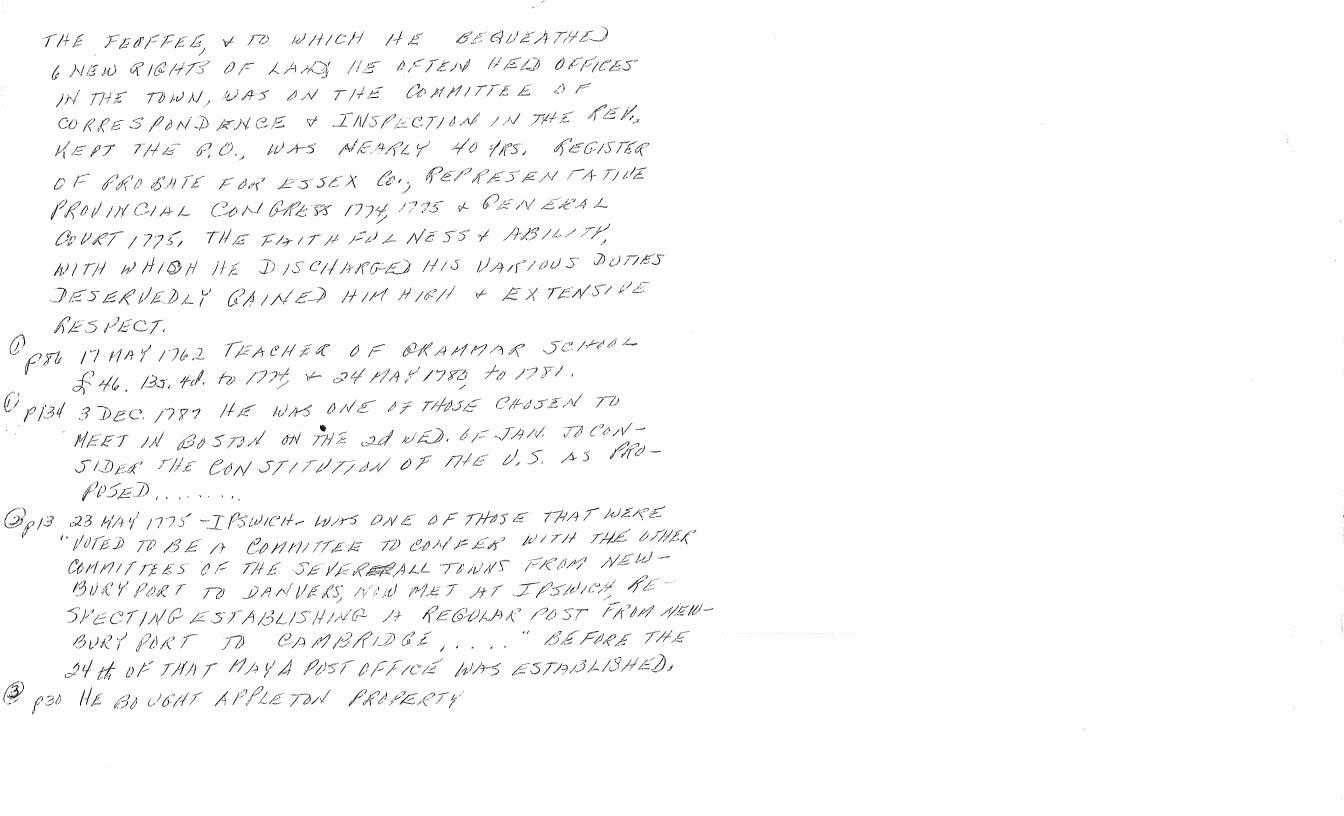 THE FEOFFEE, & TO WHICH HE BEQUEATHED
6 NEW RIGHTS OF LAND, HE OFTEN HELD OFFICES
IN THE TOWN, WAS ON THE COMMITTEE OF
CORRESPONDENCE & INSPECTION IN THE REV.,
KEPT THE P.O., WAS NEARLY 40 YRS. REGISTER
OF PROBATE FOR ESSEX CO., REPRESENTATIVE
PROVINCIAL CONGRESS 1774, 1775 & GENERAL
COURT 1775. THE FAITHFULNESS & ABILITY,
WITH WHICH HE DISCHARGED HIS VARIOUS DUTIES
DESERVEDLY GAINED HIM HIGH & EXTENSIVE
RESPECT.
① p86 17 MAY 1762 TEACHER OF GRAMMAR SCHOOL
£46. 13s. 4d. to 1774, & 24 MAY 1780, to 1781.
① p134 3 DEC. 1787 HE WAS ONE OF THOSE CHOSEN TO
MEET IN BOSTON ON THE 2d WED. OF JAN. TO CON-
SIDER THE CONSTITUTION OF THE U.S. AS PRO-
POSED.........
② p13 23 MAY 1775 - IPSWICH - WAS ONE OF THOSE THAT WERE
"VOTED TO BE A COMMITTEE TO CONFER WITH THE OTHER
COMMITTEES OF THE SEVERALL TOWNS FROM NEW-
BURYPORT TO DANVERS, NOW MET AT IPSWICH, RE-
SPECTING ESTABLISHING A REGULAR POST FROM NEW-
BURYPORT TO CAMBRIDGE, ...." BEFORE THE
24th OF THAT MAY A POST OFFICE WAS ESTABLISHED.
③ p30 HE BOUGHT APPLETON PROPERTY